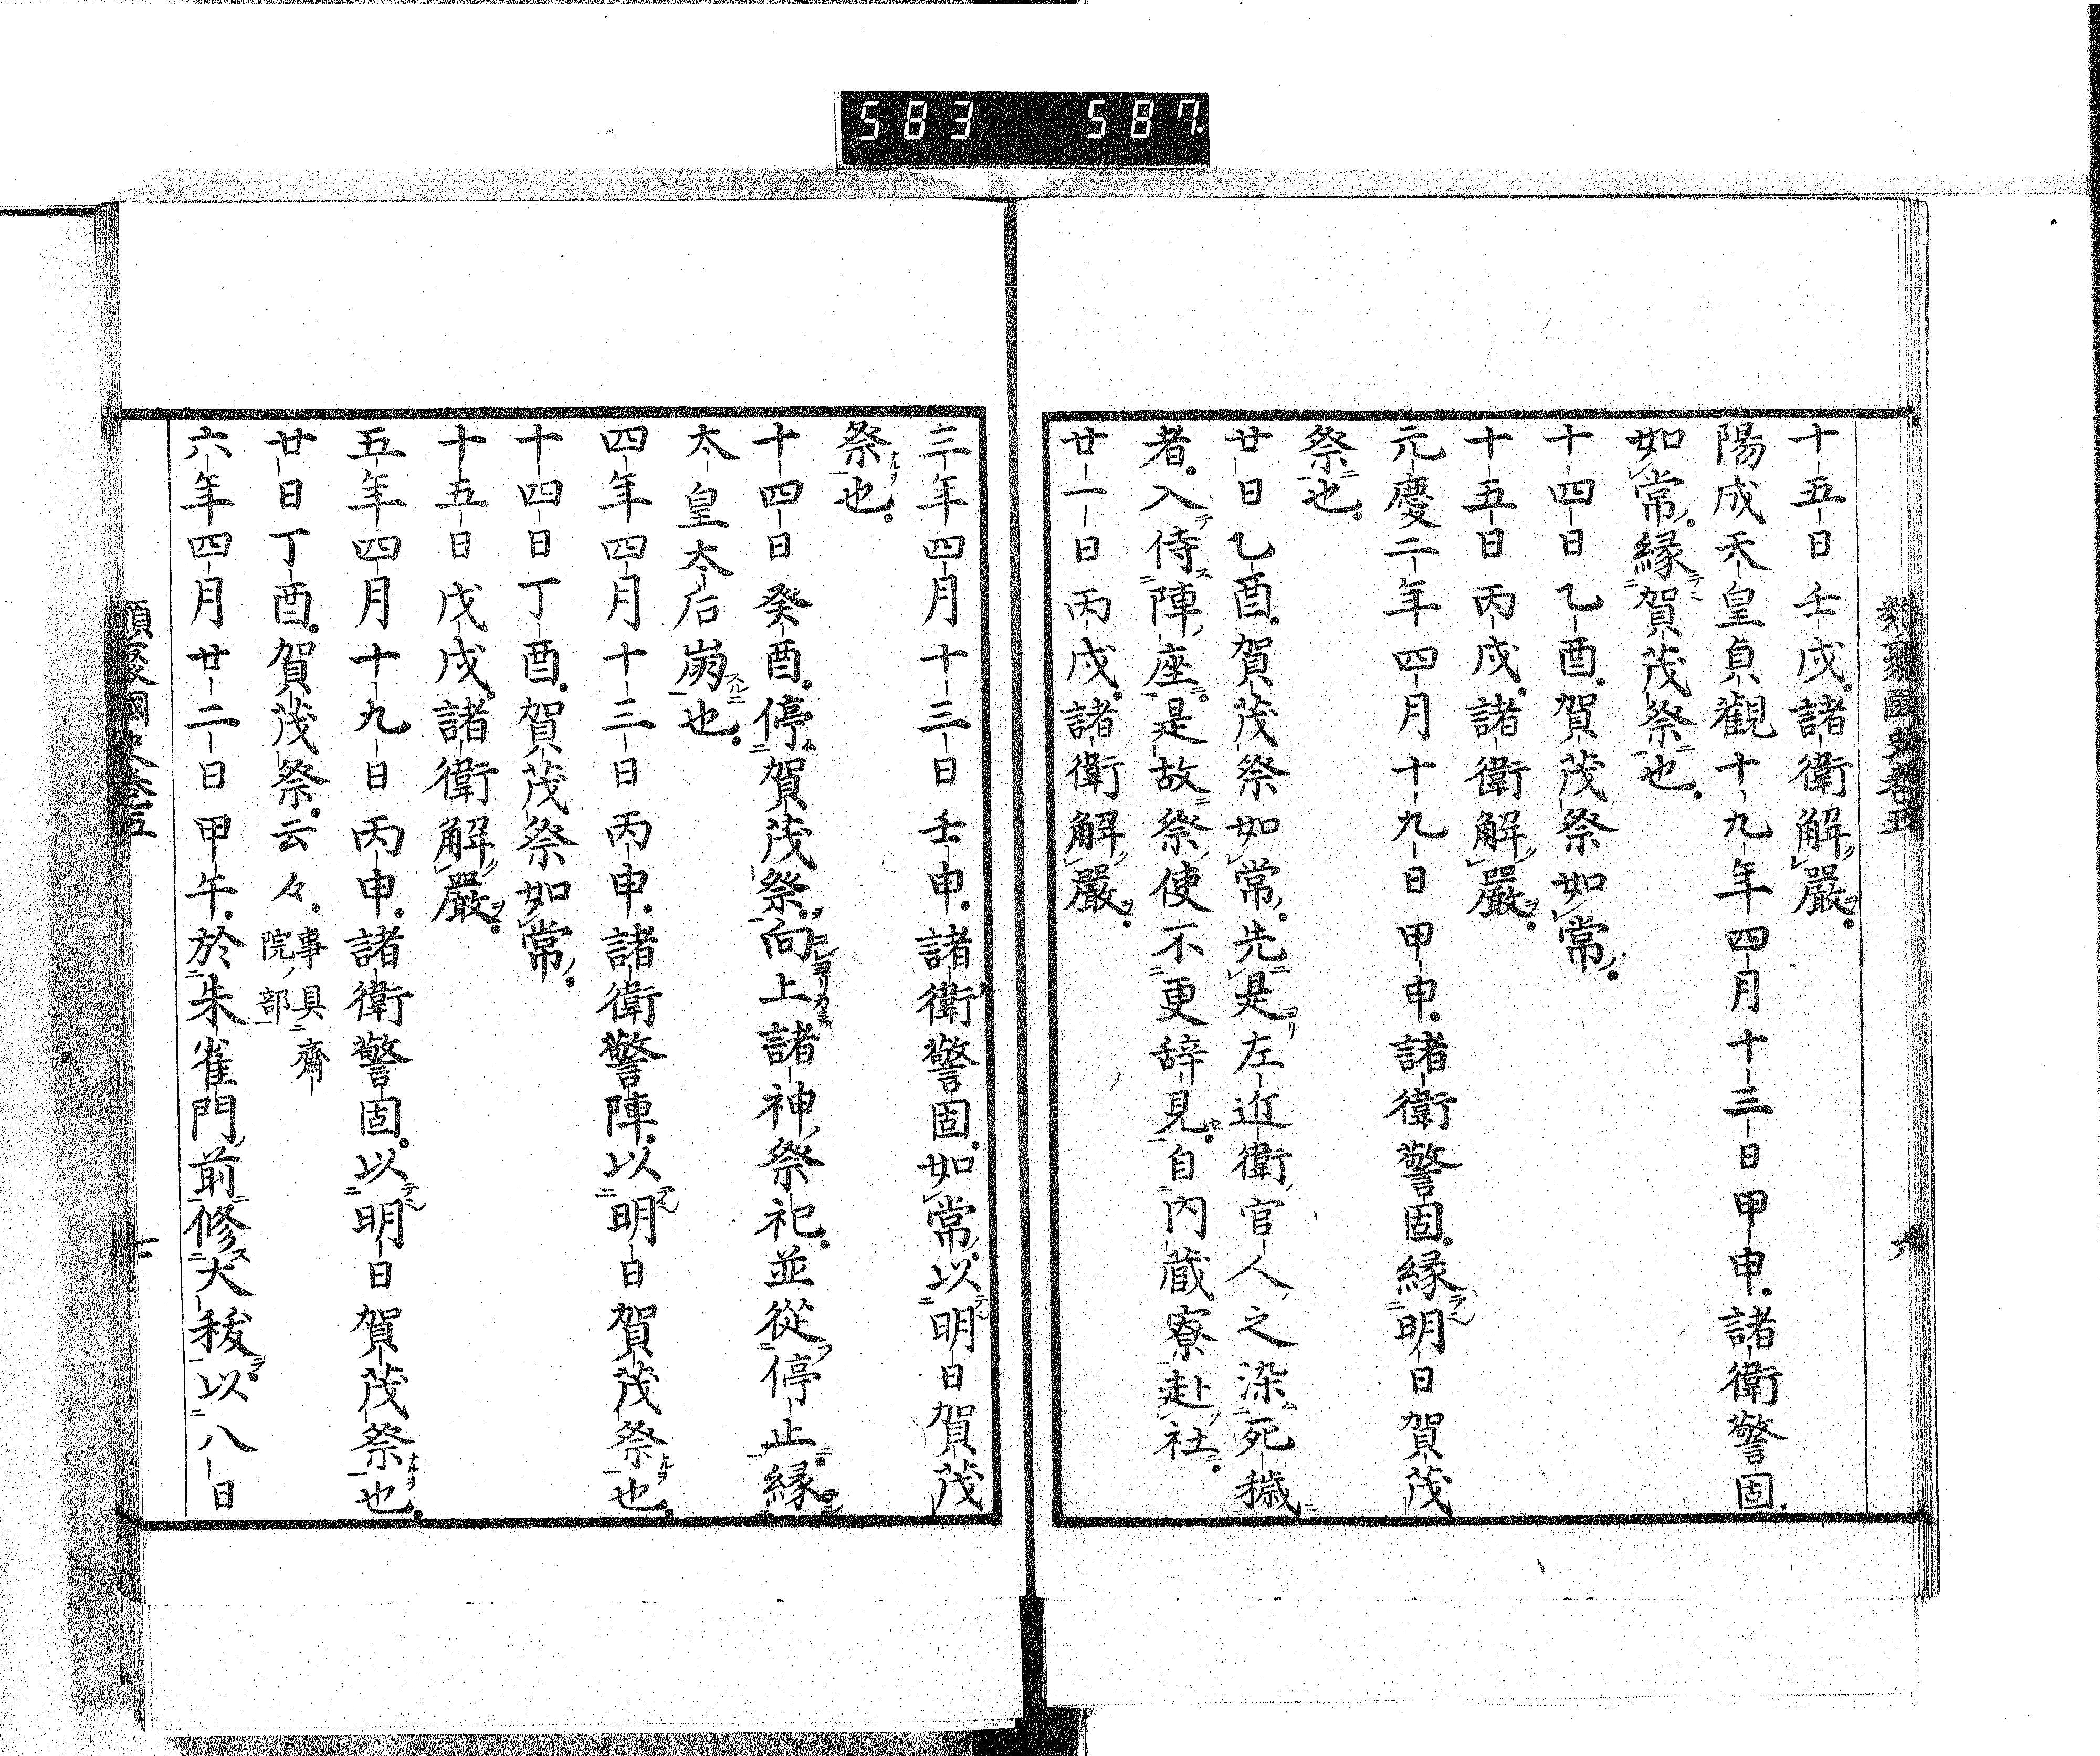 583 587
類聚國史卷五 六
十五日壬戌諸衛解嚴
陽成天皇貞觀十九年四月十三日甲申諸衛警固
如常縁賀茂祭也
十四日乙酉賀茂祭如常
十五日丙戌諸衛解嚴
元慶二年四月十九日甲申諸衛警固縁明日賀茂
祭也
廿日乙酉賀茂祭如常先是左近衛官人之染死穢
者入侍陣座是故祭使不更辞見自内蔵寮赴社
廿一日丙戌諸衛解嚴
三年四月十三日壬申諸衛警固如常以明日賀茂
祭也
十四日癸酉停賀茂祭向上諸神祭祀並從停止縁
太皇太后崩也
四年四月十三日丙申諸衛警陣以明日賀茂祭也
十四日丁酉賀茂祭如常
十五日戊戌諸衛解嚴
五年四月十九日丙申諸衛警固以明日賀茂祭也
廿日丁酉賀茂祭云々事具齋院部
六年四月廿二日甲午於朱雀門前修大秡以八日
類聚國史卷五